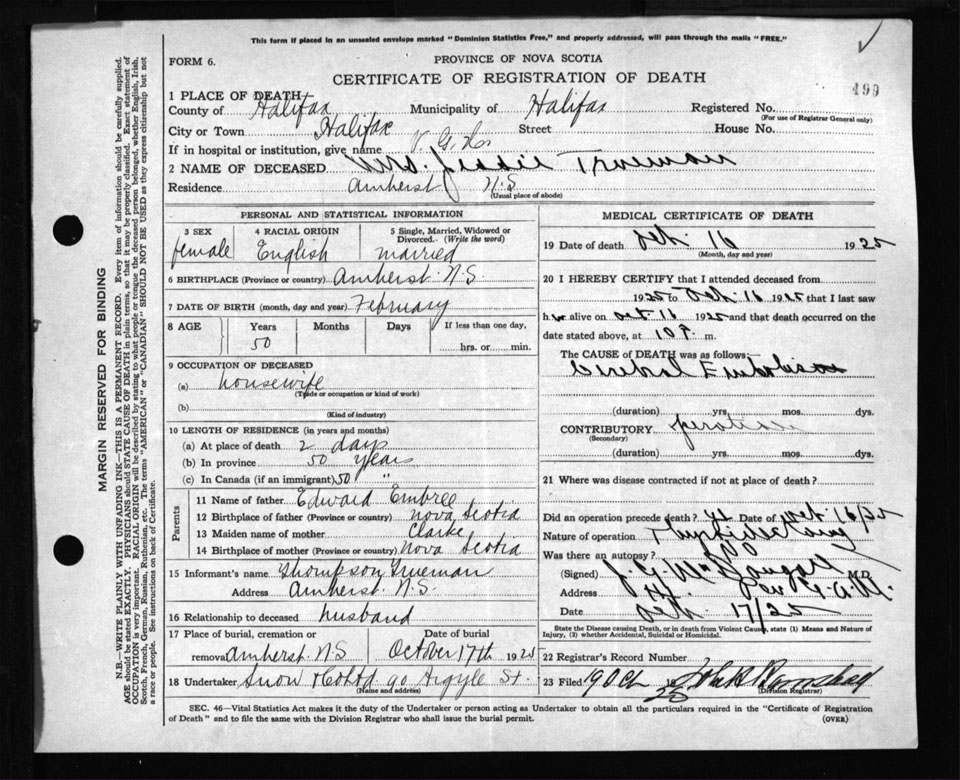 This form if placed in an unsealed envelope marked "Dominion Statistics Free," and properly addressed, will pass through the mails "FREE."
FORM 6.
PROVINCE OF NOVA SCOTIA
CERTIFICATE OF REGISTRATION OF DEATH
199
1 PLACE OF DEATH
County of Halifax Municipality of Halifax Registered No.
(For use of Registrar General only)
City or Town Halifax Street House No.
If in hospital or institution, give name V. G. Ho
2 NAME OF DECEASED Mrs. Jessie Trueman
Residence Amherst N.S
(Usual place of abode)
PERSONAL AND STATISTICAL INFORMATION
3 SEX 4 RACIAL ORIGIN 5 Single, Married, Widowed or Divorced. (Write the word)
female English married
6 BIRTHPLACE (Province or country) Amherst N.S.
7 DATE OF BIRTH (month, day and year) February
8 AGE Years Months Days If less than one day,
50 hrs. or min.
9 OCCUPATION OF DECEASED
(a) housewife
(Trade or occupation or kind of work)
(b)
(Kind of industry)
10 LENGTH OF RESIDENCE (in years and months)
(a) At place of death 2 days
(b) In province 50 years
(c) In Canada (if an immigrant) 50 "
Parents
11 Name of father Edward Embree
12 Birthplace of father (Province or country) Nova Scotia
13 Maiden name of mother Clarke
14 Birthplace of mother (Province or country) Nova Scotia
15 Informant's name Thompson Trueman
Address Amherst N.S.
16 Relationship to deceased husband
17 Place of burial, cremation or Date of burial
removal Amherst N.S October 17th 1925
18 Undertaker Snow & Co Ltd 90 Argyle St.
(Name and address)
MEDICAL CERTIFICATE OF DEATH
19 Date of death Oct. 16 1925
(Month, day and year)
20 I HEREBY CERTIFY that I attended deceased from
1925 to Oct. 16 1925 that I last saw
h er alive on Oct 16 1925 and that death occurred on the
date stated above, at 10 P. m.
The CAUSE of DEATH was as follows:
Cerebral Embolism
(duration) yrs. mos. dys.
CONTRIBUTORY
(Secondary)
(duration) yrs. mos. dys.
21 Where was disease contracted if not at place of death?
Did an operation precede death? yes Date of Oct 16/25
Nature of operation Thyroidectomy
Was there an autopsy? no
(Signed) M.D.
Address
Date Oct. 17/25
State the Disease causing Death, or in death from Violent Causes, state (1) Means and Nature of
Injury, (2) whether Accidental, Suicidal or Homicidal.
22 Registrar's Record Number
23 Filed 9 Oct 1925
(Division Registrar)
SEC. 46—Vital Statistics Act makes it the duty of the Undertaker or person acting as Undertaker to obtain all the particulars required in the "Certificate of Registration
of Death" and to file the same with the Division Registrar who shall issue the burial permit.
(OVER)
MARGIN RESERVED FOR BINDING
N.B.—WRITE PLAINLY WITH UNFADING INK—THIS IS A PERMANENT RECORD. Every item of information should be carefully supplied.
AGE should be stated EXACTLY. PHYSICIANS should STATE CAUSE OF DEATH in plain terms, so that it may be properly classified. Exact statement of
OCCUPATION is very important. RACIAL ORIGIN will be described by stating to what people or tongue the deceased person belonged, whether English, Irish,
Scotch, French, German, Russian, Ruthenian, etc. The terms "AMERICAN" or "CANADIAN" SHOULD NOT BE USED as they express citizenship but not
a race or people. See instructions on back of Certificate.